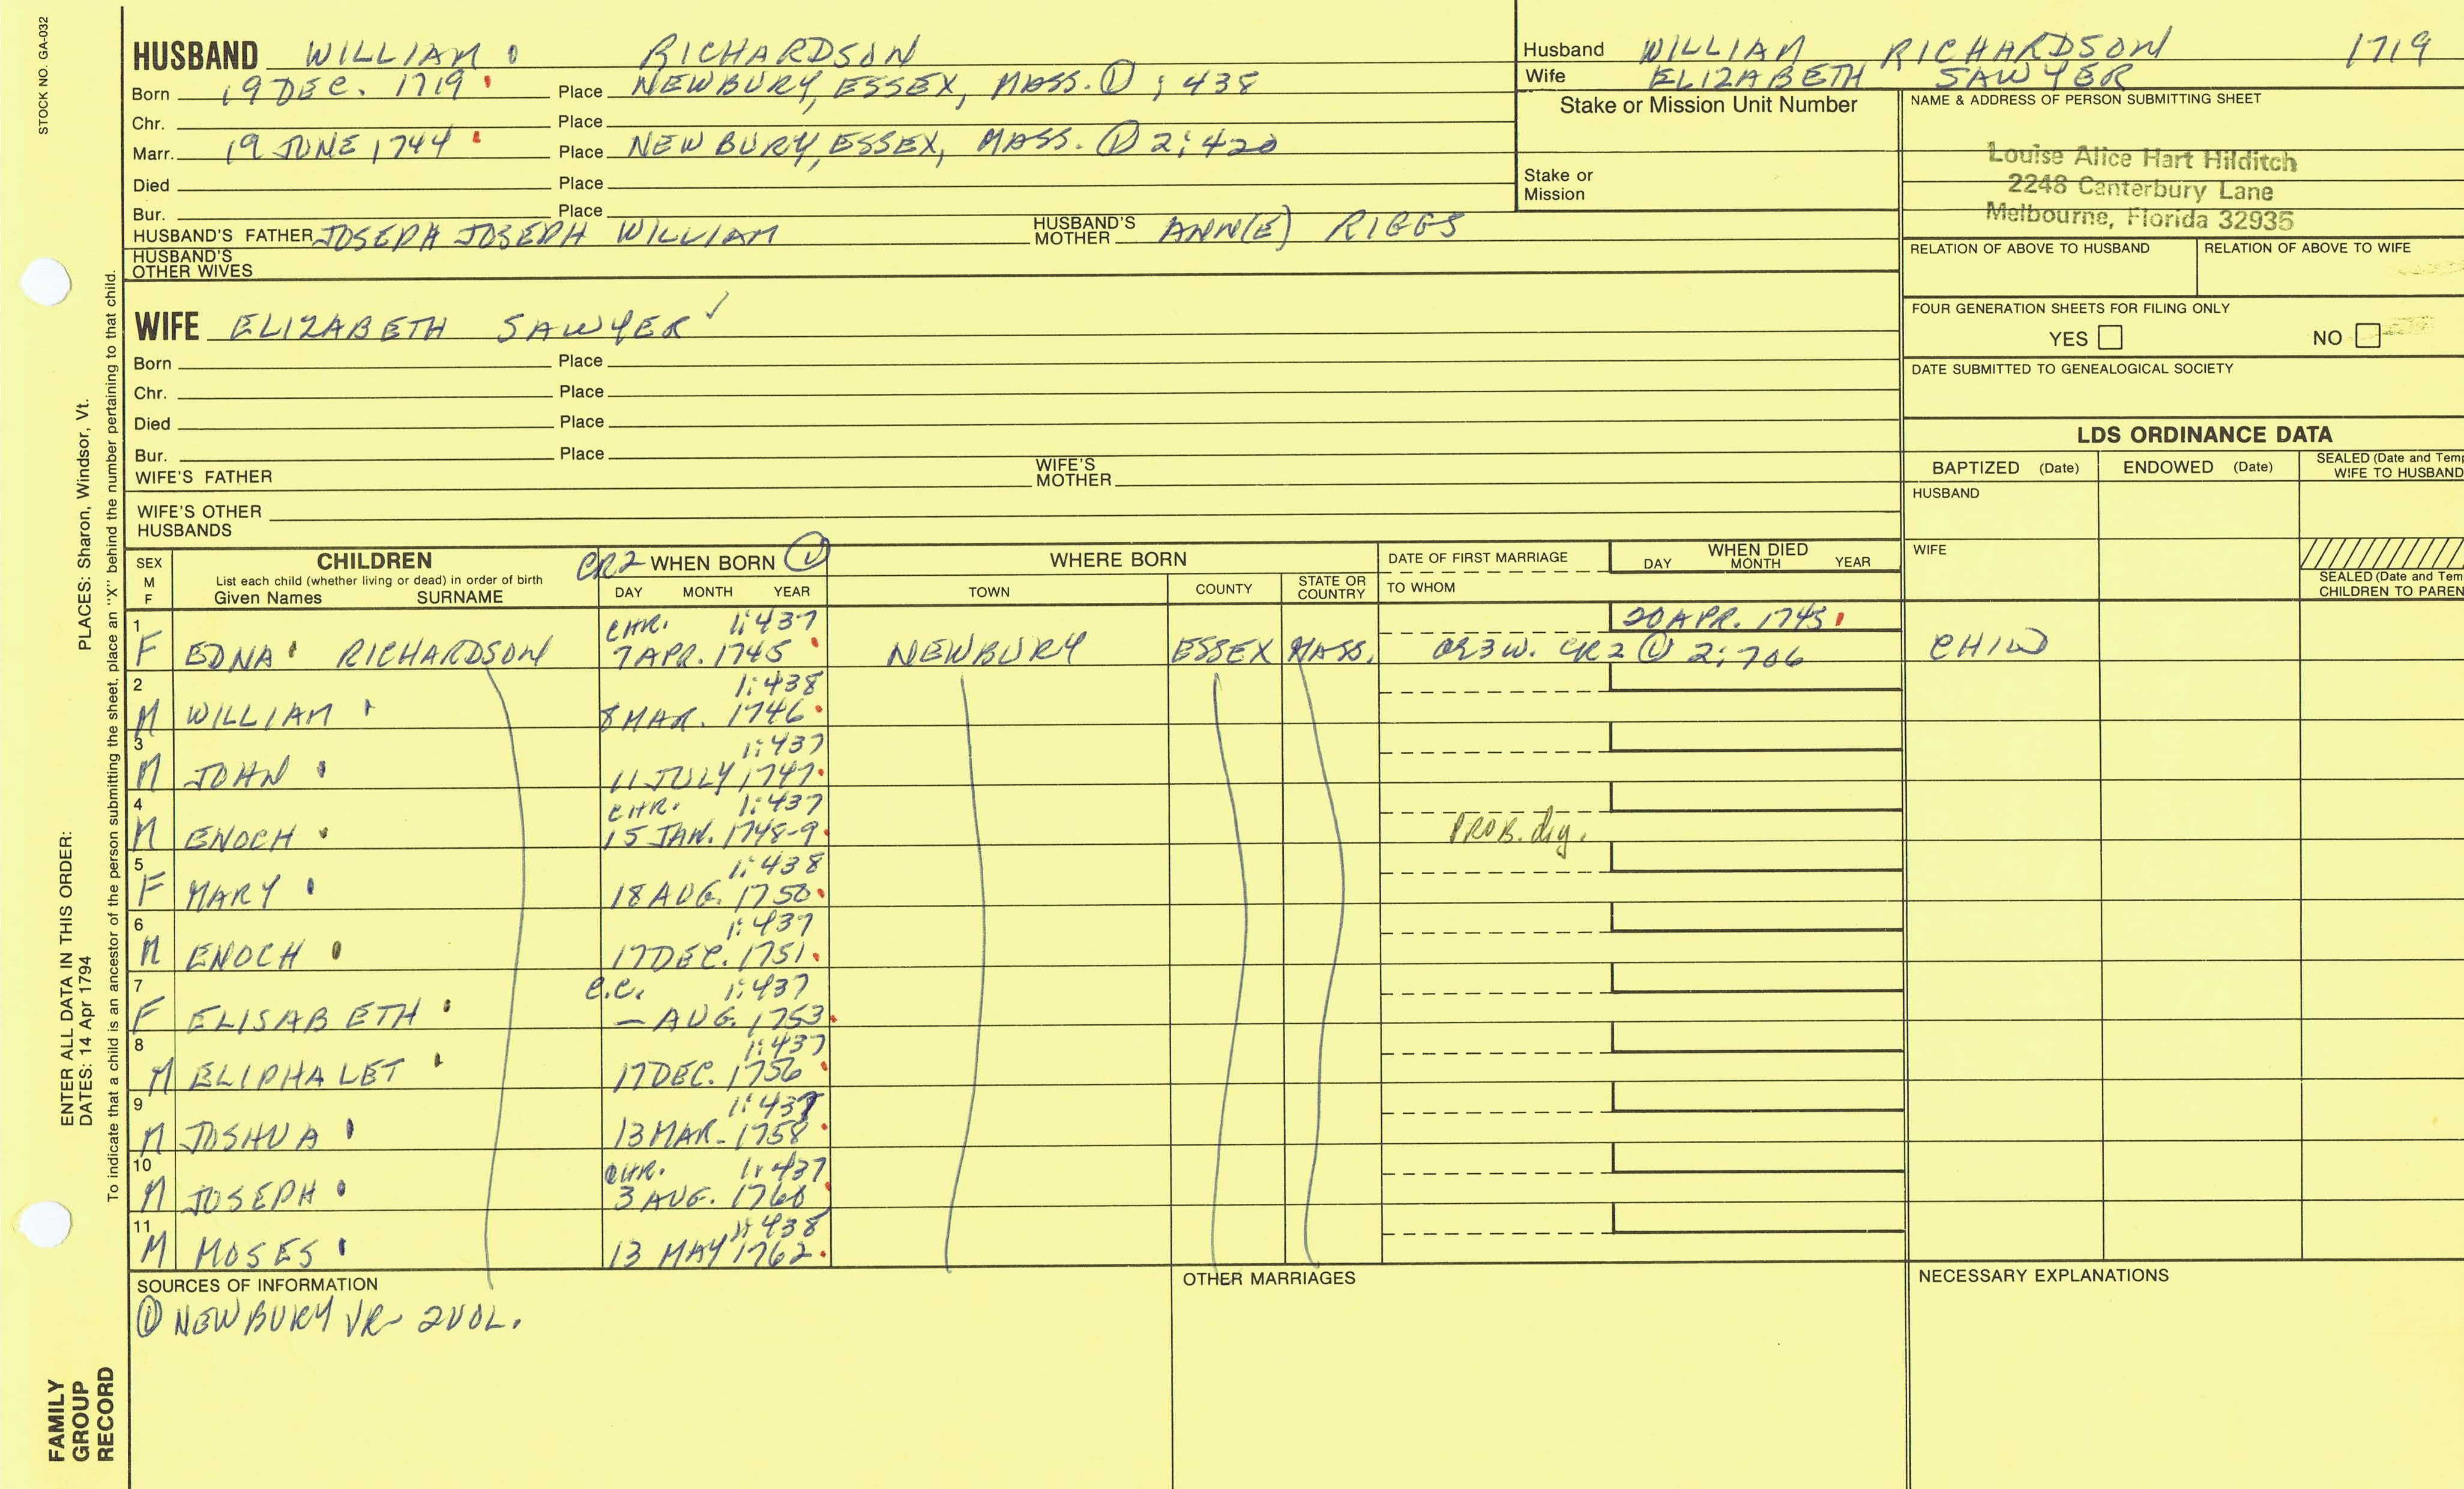 STOCK NO. GA-032
HUSBAND WILLIAM RICHARDSON
Born 19 DEC. 1719 Place NEWBURY, ESSEX, MASS. ① ; 438
Chr. Place
Marr. 19 JUNE 1744 Place NEWBURY, ESSEX, MASS. ① 2:420
Died Place
Bur. Place
HUSBAND'S FATHER JOSEPH JOSEPH WILLIAM HUSBAND'S MOTHER ANN(E) RIGGS
HUSBAND'S OTHER WIVES
WIFE ELIZABETH SAWYER ✓
Born Place
Chr. Place
Died Place
Bur. Place
WIFE'S FATHER WIFE'S MOTHER
WIFE'S OTHER HUSBANDS
Husband WILLIAM RICHARDSON 1719
Wife ELIZABETH SAWYER
Stake or Mission Unit Number
Stake or Mission
NAME & ADDRESS OF PERSON SUBMITTING SHEET
Louise Alice Hart Hilditch
2248 Canterbury Lane
Melbourne, Florida 32935
RELATION OF ABOVE TO HUSBAND RELATION OF ABOVE TO WIFE
FOUR GENERATION SHEETS FOR FILING ONLY
YES NO
DATE SUBMITTED TO GENEALOGICAL SOCIETY
LDS ORDINANCE DATA
BAPTIZED (Date) ENDOWED (Date) SEALED (Date and Temp
WIFE TO HUSBAND
HUSBAND
WIFE
SEALED (Date and Tem
CHILDREN TO PAREN
SEX M F
CHILDREN
List each child (whether living or dead) in order of birth
Given Names SURNAME
CR2 WHEN BORN ①
DAY MONTH YEAR
WHERE BORN
TOWN COUNTY STATE OR COUNTRY
DATE OF FIRST MARRIAGE
TO WHOM
WHEN DIED
DAY MONTH YEAR
1 CHR. 1:437 20 APR. 1745
F EDNA RICHARDSON 7 APR. 1745 NEWBURY ESSEX MASS. CR2 ① 2:706 CHILD
2 1:438
M WILLIAM 8 MAR. 1746
3 1:437
M JOHN 11 JULY 1747
4 CHR. 1:437
M ENOCH 15 JAN. 1748-9 PROB. d.y.
5 1:438
F MARY 18 AUG. 1750
6 1:437
M ENOCH 17 DEC. 1751
7 C.C. 1:437
F ELISABETH — AUG. 1753
8 1:437
M ELIPHALET 17 DEC. 1756
9 1:437
M JOSHUA 13 MAR. 1758
10 CHR. 1:437
M JOSEPH 3 AUG. 1760
11 1:438
M MOSES 13 MAY 1762
SOURCES OF INFORMATION
① NEWBURY VR- 2VOL.
OTHER MARRIAGES
NECESSARY EXPLANATIONS
FAMILY GROUP RECORD
ENTER ALL DATA IN THIS ORDER:
DATES: 14 Apr 1794 PLACES: Sharon, Windsor, Vt.
To indicate that a child is an ancestor of the person submitting the sheet, place an "X" behind the number pertaining to that child.